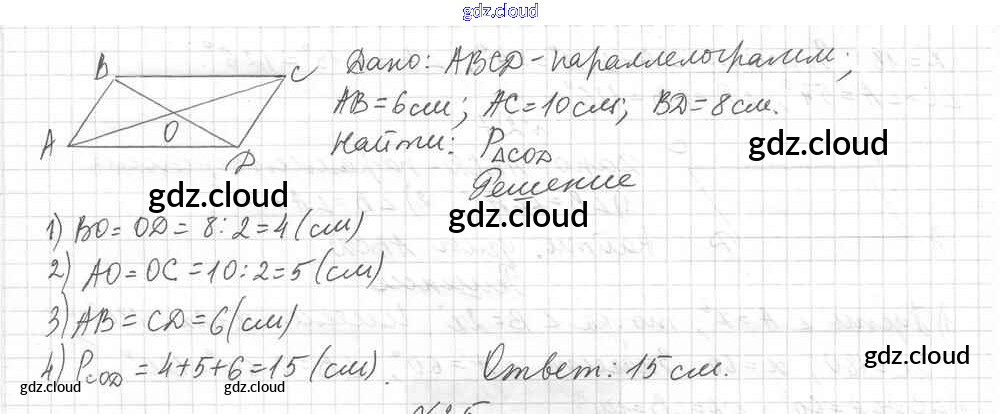 gdz.cloud
B C
A O D
Дано: ABCD - параллелограмм;
AB = 6 см; AC = 10 см; BD = 8 см.
Найти: P△COD
gdz.cloud
Решение
gdz.cloud
gdz.cloud
1) BO = OD = 8 : 2 = 4 (см)
2) AO = OC = 10 : 2 = 5 (см)
3) AB = CD = 6 (см)
4) PCOD = 4 + 5 + 6 = 15 (см).
Ответ: 15 см.
gdz.cloud
gdz.cloud
gdz.cloud